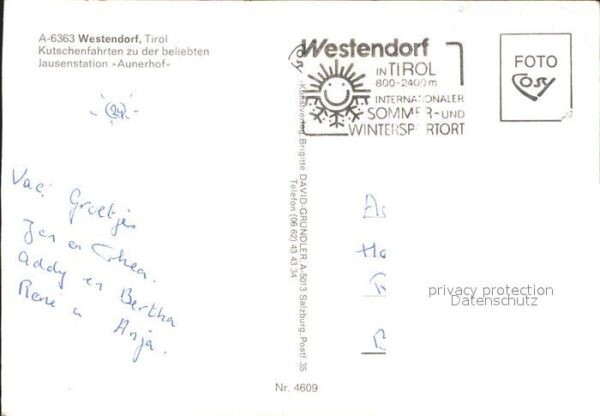 A-6363 Westendorf, Tirol
Kutschenfahrten zu der beliebten
Jausenstation »Aunerhof«
24
Vac. Groetjes
Jan en Thea.
Addy en Bertha
René en Anja.
Kunstverlag Brigitte DAVID-GRÜNDLER, A-5013 Salzburg, Postf. 35
Telefon (06 62) 43 43 34
Westendorf
IN TIROL
800-2400m
INTERNATIONALER
SOMMER-UND
WINTERSPORTORT
FOTO
Cosy
privacy protection
Datenschutz
Nr. 4609